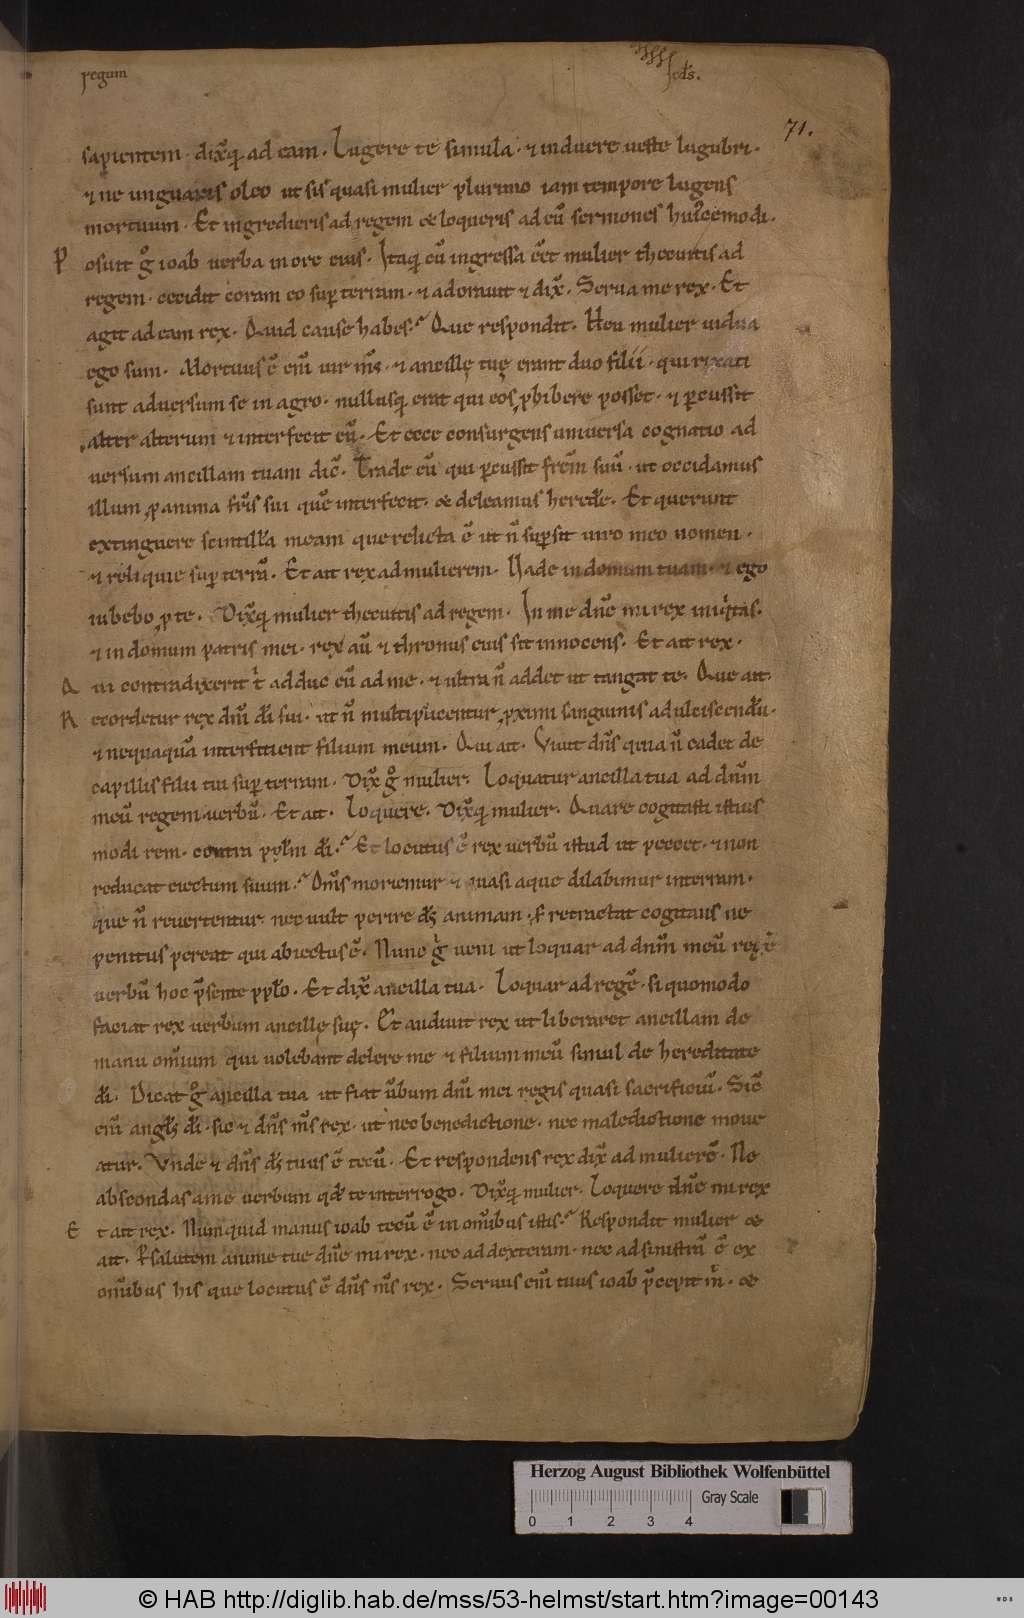 regum
scds.
71.
sapientem. dixitq; ad eam. Lugere te simula. & induere ueste lugubri.
& ne unguaris oleo ut sis quasi mulier plurimo iam tempore lugens
mortuum. Et ingredieris ad regem & loqueris ad eū sermones huiuscemodi.
P osuit gͦ ioab uerba in ore eius. Itaq; cū ingressa eēt mulier thecuitis ad
regem. cecidit coram eo sup terram. & adorauit & dix̄. Serua me rex. Et
agit ad eam rex. Quid cause habes? Que respondit. Heu mulier uidua
ego sum. Mortuus ē eni̅ uir m̅s. & ancillę tuę erant duo filii. qui rixati
sunt aduersum se in agro. nullusq; erat qui eos ꝓhibere posset. & ꝑcussit
alter alterum & interfecit eū. Et ecce consurgens uniuersa cognatio ad
uersum ancillam tuam dic̄. Trade eū qui ꝑcussit frēm suū. ut occidamus
illum ꝓ anima fr̅is sui quē interfecit. & deleamus heredē. Et querunt
extinguere scintillā meam que relicta ē ut n̅ sup̱sit uiro meo nomen.
& reliquie sup̱ terrā. Et ait rex ad mulierem. Uade in domum tuam. & ego
iubebo ꝓ te. Dixitq; mulier thecuitis ad regem. In me dn̅e mi rex iniqͥtas.
& in domum patris mei. rex aū & thronus eius sit innocens. Et ait rex.
Q ui contradixerit tͥ adduc eū ad me. & ultra n̅ addet ut tangat te. Que ait.
R ecordetur rex dn̅i di̅ sui. ut n̅ multiplicentur ꝓximi sanguinis ad ulciscendū.
& nequaquā interficient filium meum. Qui ait. Uiuit dn̅s quia n̅ cadet de
capillis filii tui sup̱ terram. Dix̄ gͦ mulier. Loquatur ancilla tua ad dn̅m
meū regem uerbū. Et ait. Loquere. Dixitq; mulier. Quare cogitasti istius
modi rem. contra pp̱lm di̅? Et locutus ē rex uerbū istud ut peccet. & non
reducat eiectum suum? Om̅s morimur & quasi aque dilabimur in terram.
que n̅ reuertentur nec uult perire ds̅ animam. s; retractat cogitans ne
penitus pereat qui abiectus ē. Nunc gͥ ueni ut loquar ad dn̅m meū regē
uerbū hoc p̅sente pplo̅. Et dix̄ ancilla tua. Loquar ad regē. si quomodo
faciat rex uerbum ancillę suę. Et audiuit rex ut liberaret ancillam de
manu om̅ium qui uolebant delere me & filium meū simul de hereditate
di̅. Dicat gͦ ancilla tua ut fiat u̅bum dn̅i mei regis quasi sacrificiū. Sic̄
eni̅ angl̅s di̅. sic & dn̅s m̅s rex. ut nec benedictione. nec maledictione moue
atur. Unde & dn̅s ds̅ tuus ē tecū. Et respondens rex dix̄ ad mulierē. Ne
abscondas a me uerbum qd̅ te interrogo. Dixitq; mulier. Loquere dn̅e mi rex
E t ait rex. Numquid manus ioab tecū ē in om̅ibus istis? Respondit mulier &
ait. P salutem anime tue dn̅e mi rex. nec ad dexteram. nec ad sinistrā ē ex
om̅ibus his que locutus ē dn̅s m̅s rex. Seruus eni̅ tuus ioab p̅cepit mͥ. &
Herzog August Bibliothek Wolfenbüttel
Gray Scale
0 1 2 3 4
© HAB http://diglib.hab.de/mss/53-helmst/start.htm?image=00143